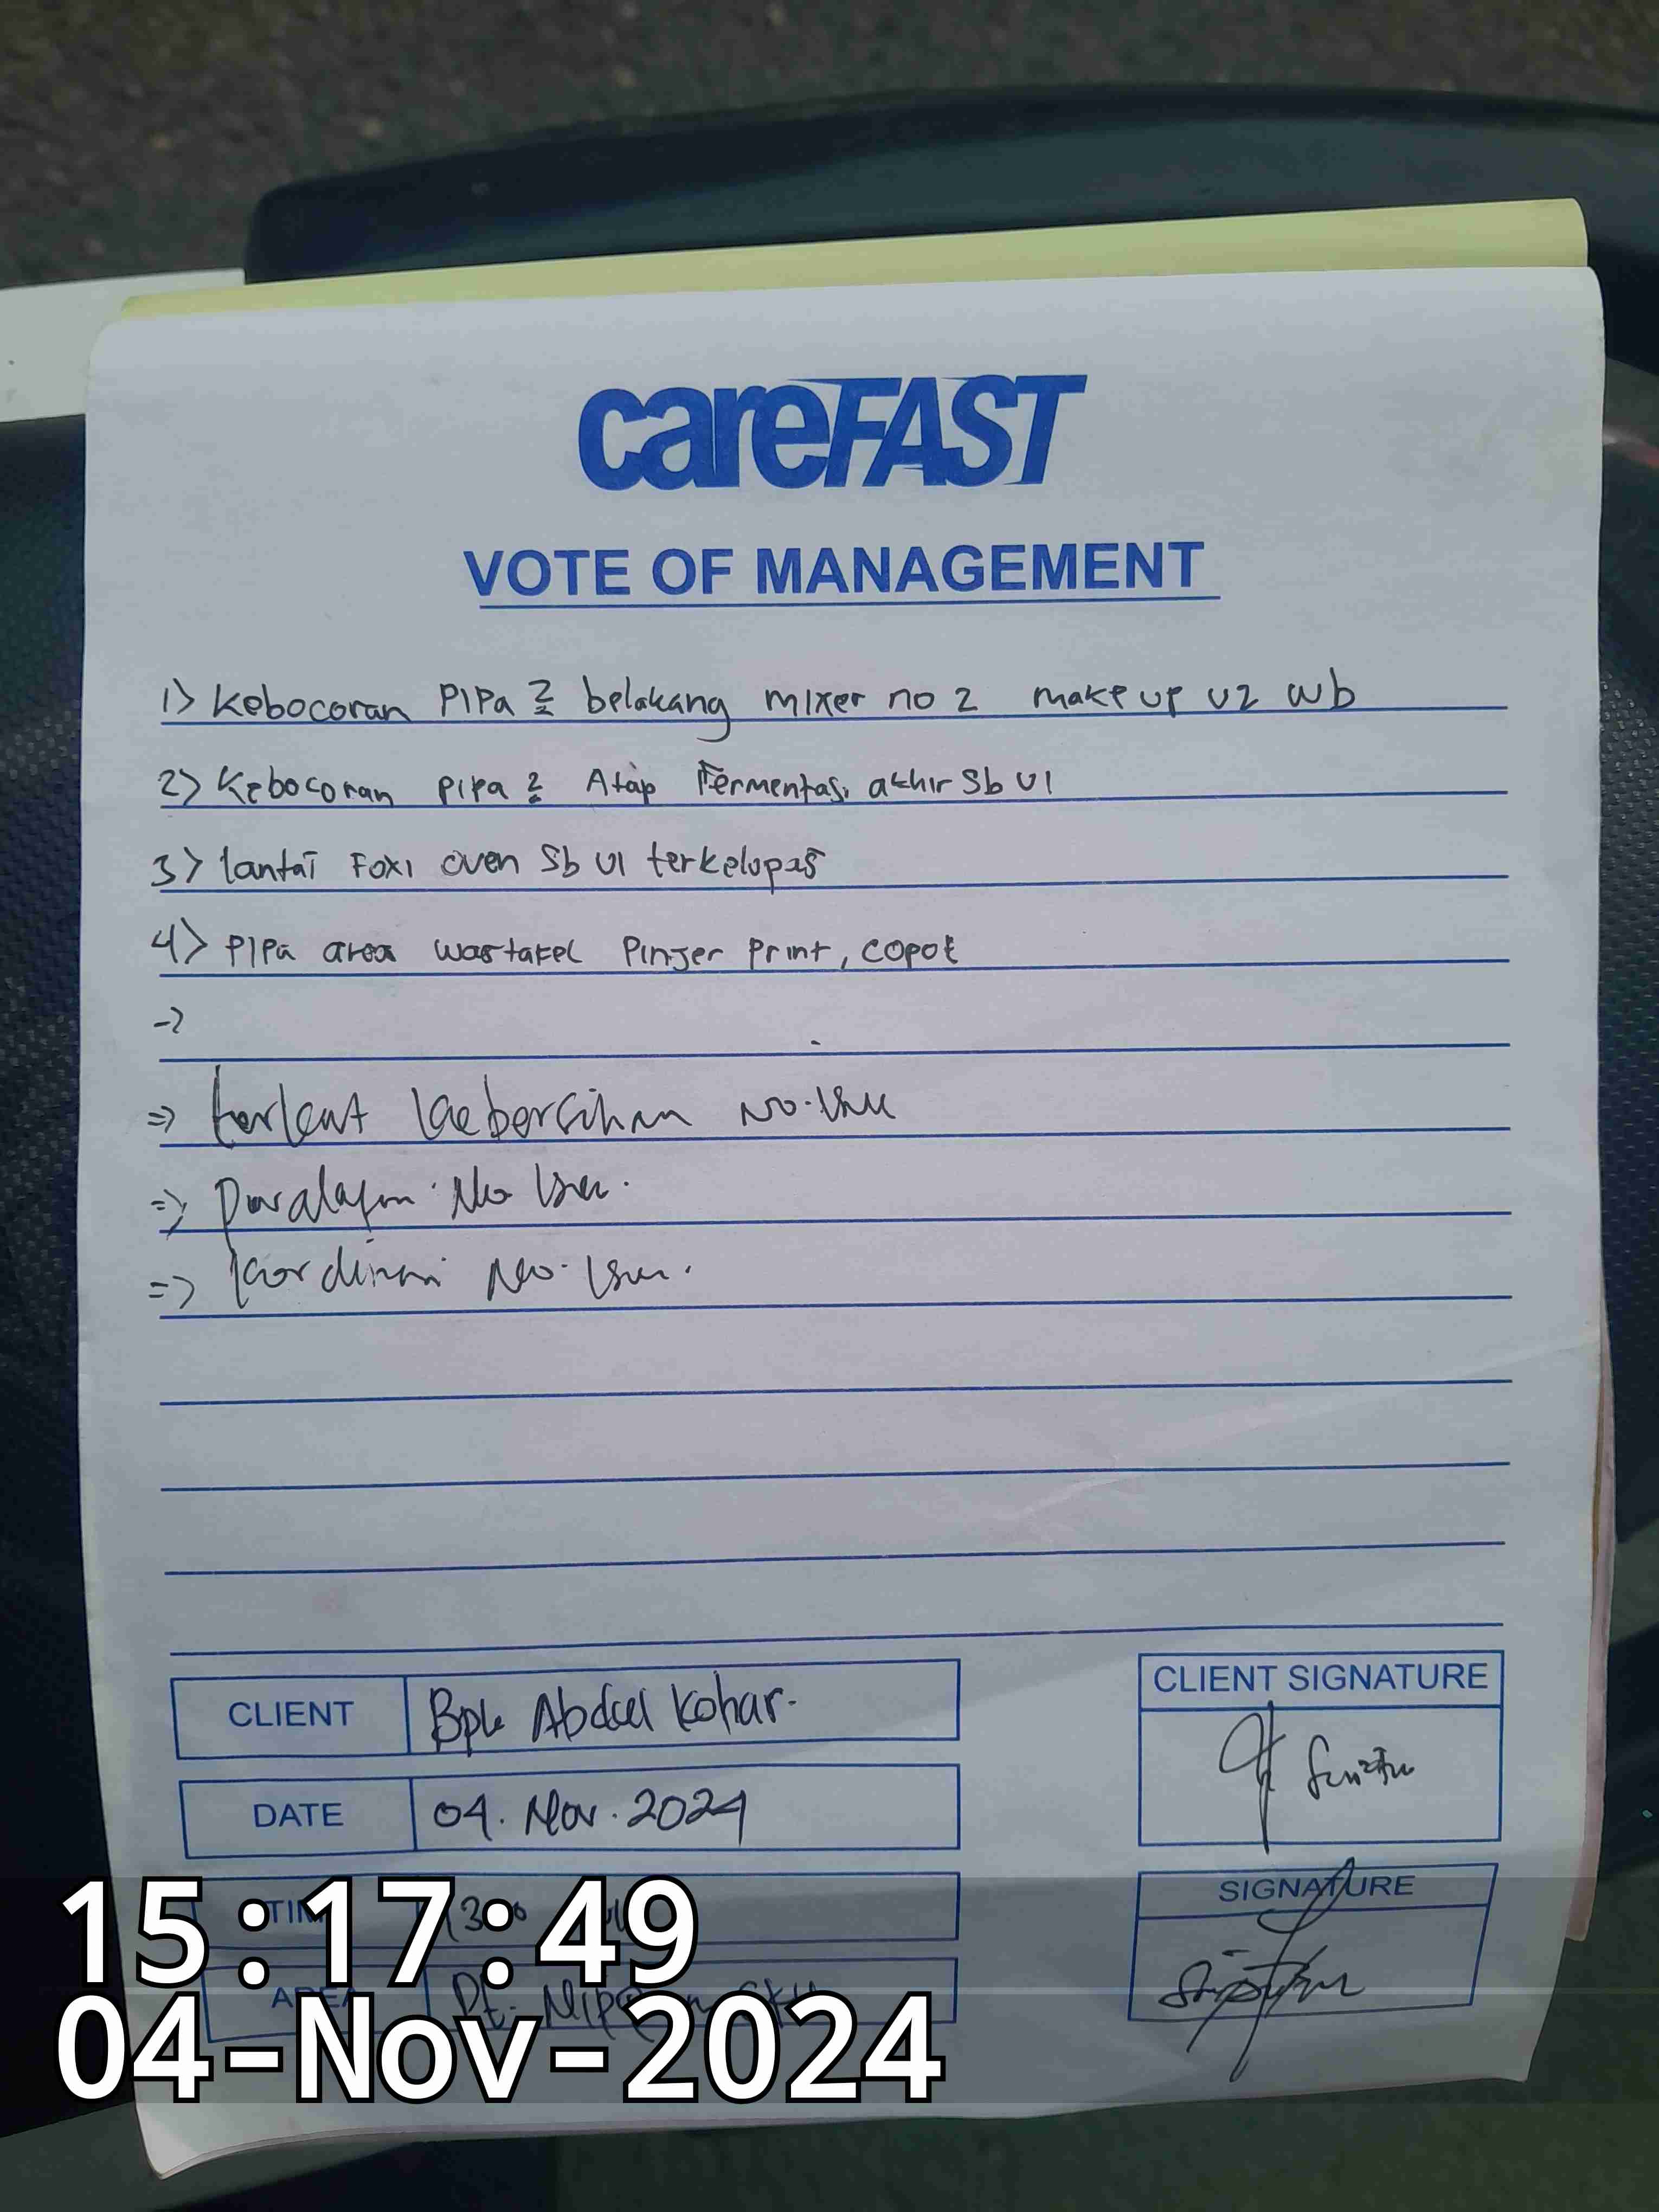 careFAST
VOTE OF MANAGEMENT
1) Kebocoran PIPa 2 belakang mixer no 2 make up U2 wb
2) Kebocoran pipa 2 Atap Fermentasi akhir Sb U1
3) lantai Foxi oven Sb U1 terkelupas
4) PIPa area wastafel Pinjer Print, copot
->
=> terkait kebersihan no. Usu
=> No Usu.
=> No. Usu.
CLIENT Bpk Abdul Kohar.
DATE 04. Nov. 2024
CLIENT SIGNATURE
SIGNATURE
TIME
AREA PT.
15:17:49
04-Nov-2024